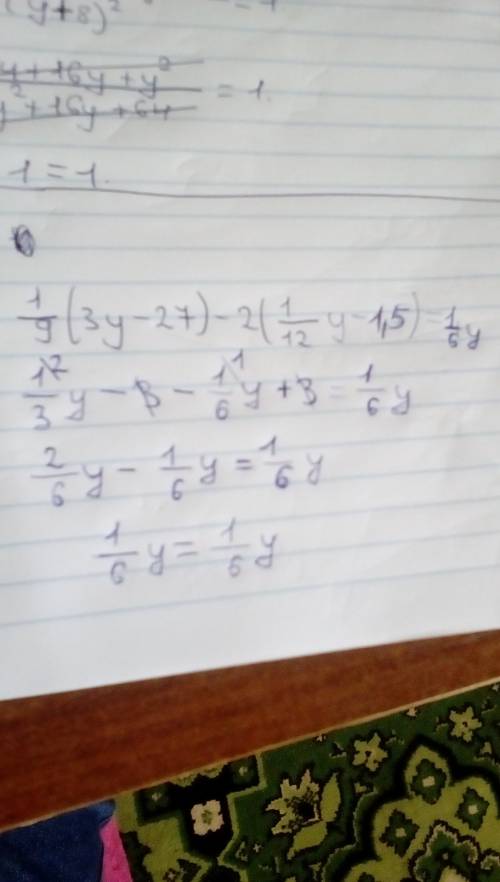 (y+8)² = 1
y+16y+y²/y²+16y+64 = 1.
1 = 1.
1/9(3y-27)-2(1/12y-1,5)=1/6y
1/3y - 3 - 1/6y + 3 = 1/6y
2/6y - 1/6y = 1/6y
1/6y = 1/6y